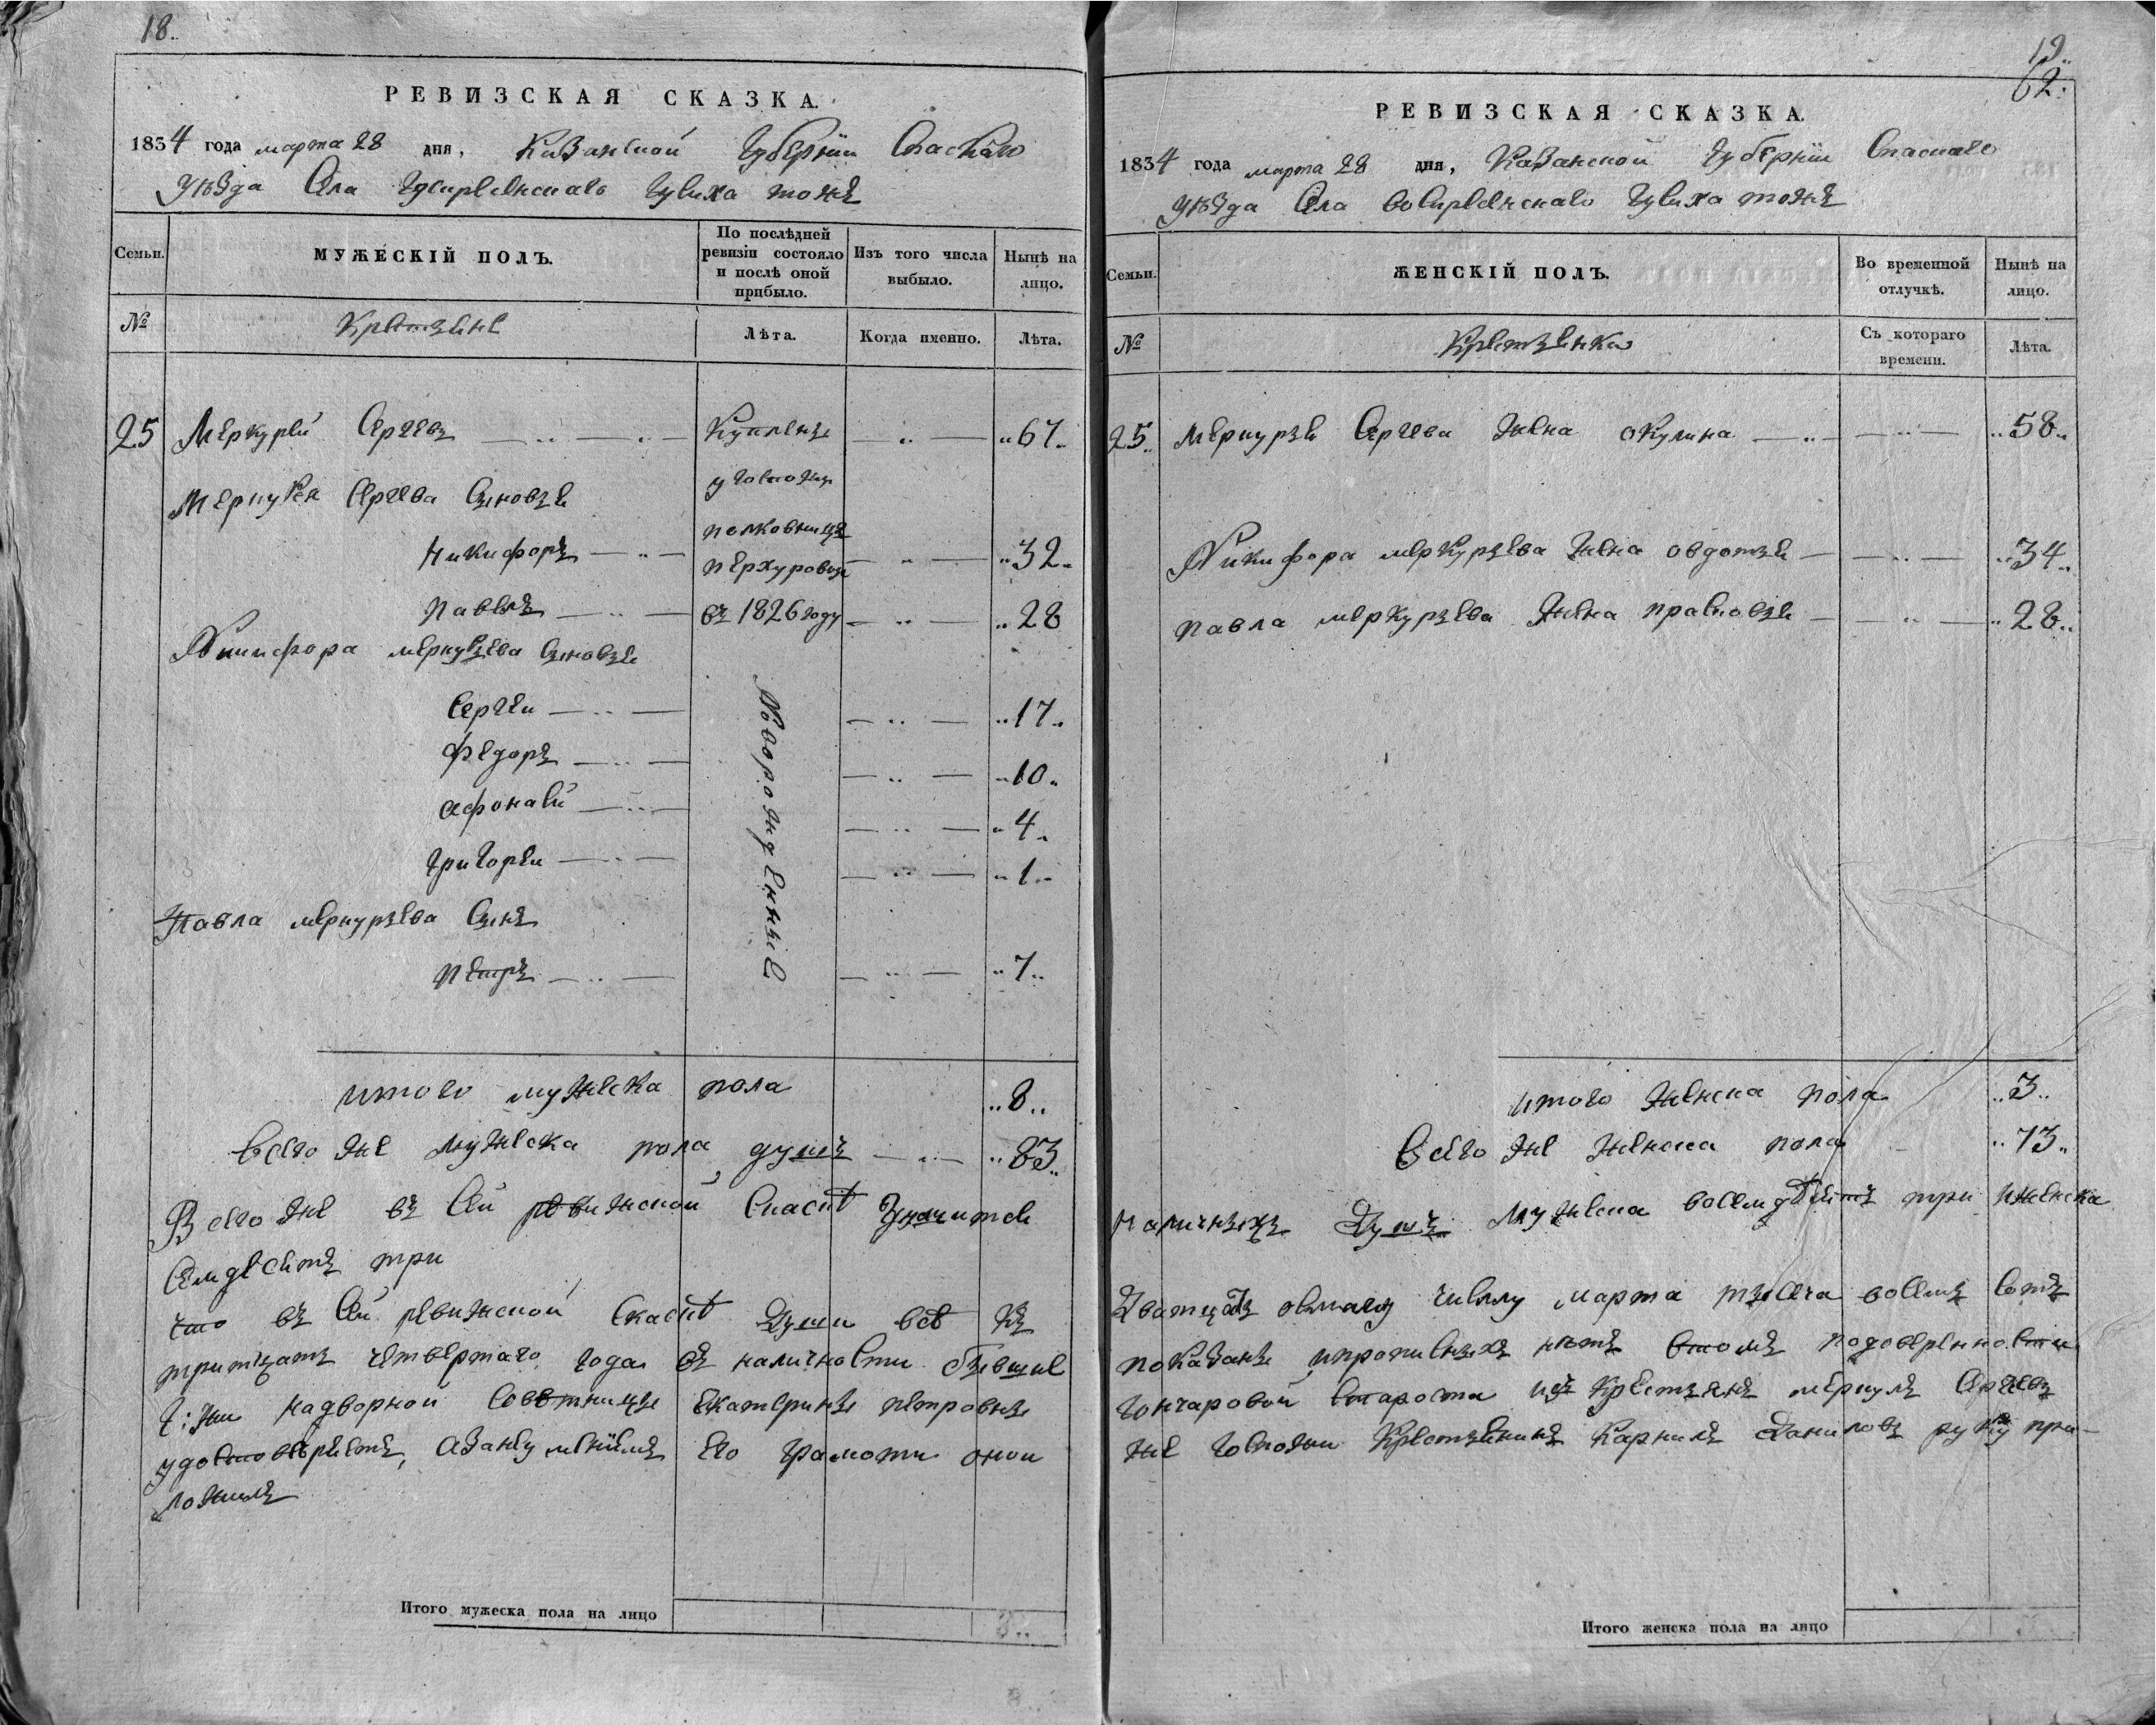 18..
РЕВИЗСКАЯ СКАЗКА.
1834 года марта 28 дня, Казанской Губернии Спаскаго
уѣзда Села Чувиха тожъ
Семьи. МУЖЕСКІЙ ПОЛЪ. По послѣдней ревизіи состояло и послѣ оной прибыло. Изъ того числа выбыло. Нынѣ на лицо.
№ Крестьяне Лѣта. Когда именно. Лѣта.
25 Меркурей Сергевъ Купленъ 67
Меркурея Сергева Сыновьи у Госпожи
полковницы
Никифоръ 32
Павелъ въ 1826 году 28
Никифора меркурьева Сыновьи
Сергеи 17
Федоръ 10
Афонасей 4
Григореи 1
Новорожденные
Павла меркурьева Сынъ
Петръ 7
итого мужеска пола 8
Всего же мужеска пола душъ 83
Всего же въ Сей ревижской Скаскѣ
Семдесятъ три
что въ Сей ревижской Скаскѣ Души всѣ
тритцать четвертаго года въ наличности бывшие
Г:жи надворной Советницы Екатерины петровны
его грамоти онои
ложилъ
Итого мужеска пола на лицо
19..
62.
РЕВИЗСКАЯ СКАЗКА.
1834 года марта 28 дня, Казанской Губернии Спаскаго
уѣзда Села Воскресенскаго Чувиха тожъ
Семьи. ЖЕНСКІЙ ПОЛЪ. Во временной отлучкѣ. Нынѣ на лицо.
№ Крестьянки Съ котораго времени. Лѣта.
25 Меркурья Сергева жена окулина 58
Никифора меркурьева жена овдотья 34
павла меркурьева жена 28
итого женска пола 3
Всего же женска пола 73
наличныхъ Душъ мужеска восемдесятъ три женска
Дватцать осмаго числу марта тысеча восемъ сотъ
показаны нетъ втомъ подоверенности
Гончаровой Староста изъ Крестьянъ Сергевъ
же Госпожи Крестьянинъ Карнилъ Даниловъ руку при-
Итого женска пола на лицо